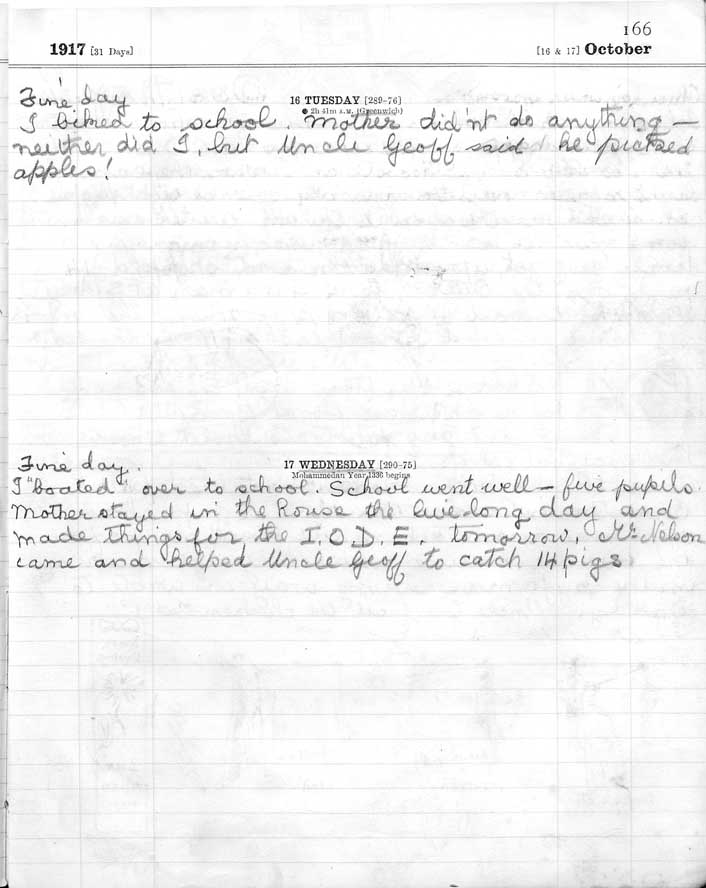 166
1917 [31 Days] [16 & 17] October
Fine day
16 TUESDAY [289-76]
● 2h 41m A.M. (Greenwich)
I biked to school. Mother did'nt do anything —
neither did I, but Uncle Geoff said he picked
apples!
Fine day.
17 WEDNESDAY [290-75]
Mohammedan Year 1336 begins
I "boated" over to school. School went well — five pupils
Mother stayed in the house the livelong day and
made things for the I.O.D.E. tomorrow. Mr. Nelson
came and helped Uncle Geoff to catch 14 pigs